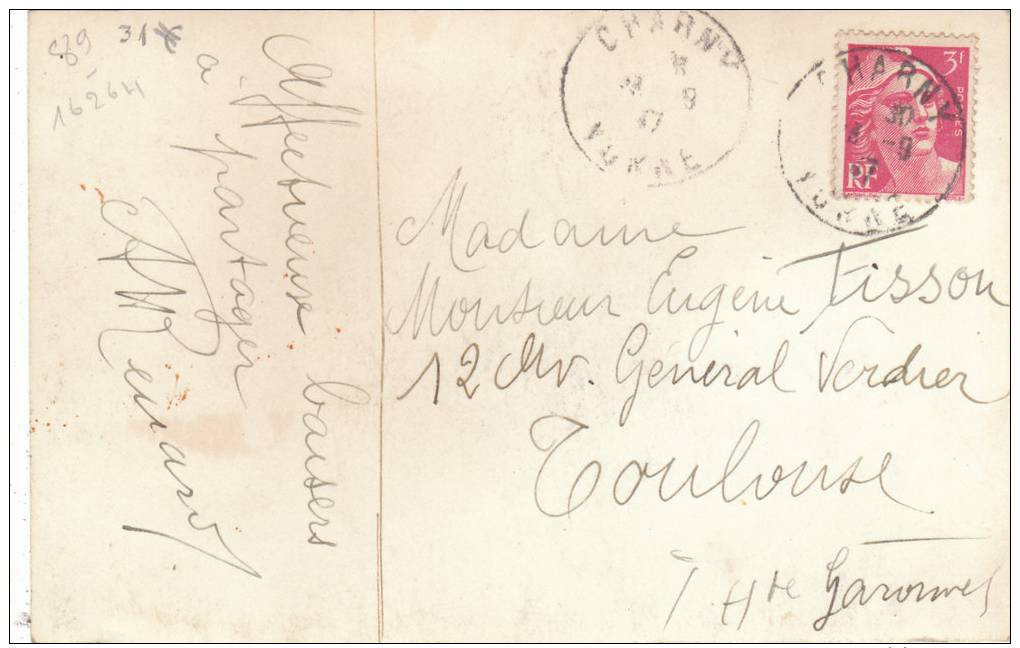 89
31€
16264
Affectueux baisers
à partager
AMRenard
CHARNY
47
YONNE
3F
POSTES
RF
CHARNY
30
-9
YONNE
Madame
Monsieur Eugène Tisson
12 Av. Général Verdier
Toulouse
Hte Garonne